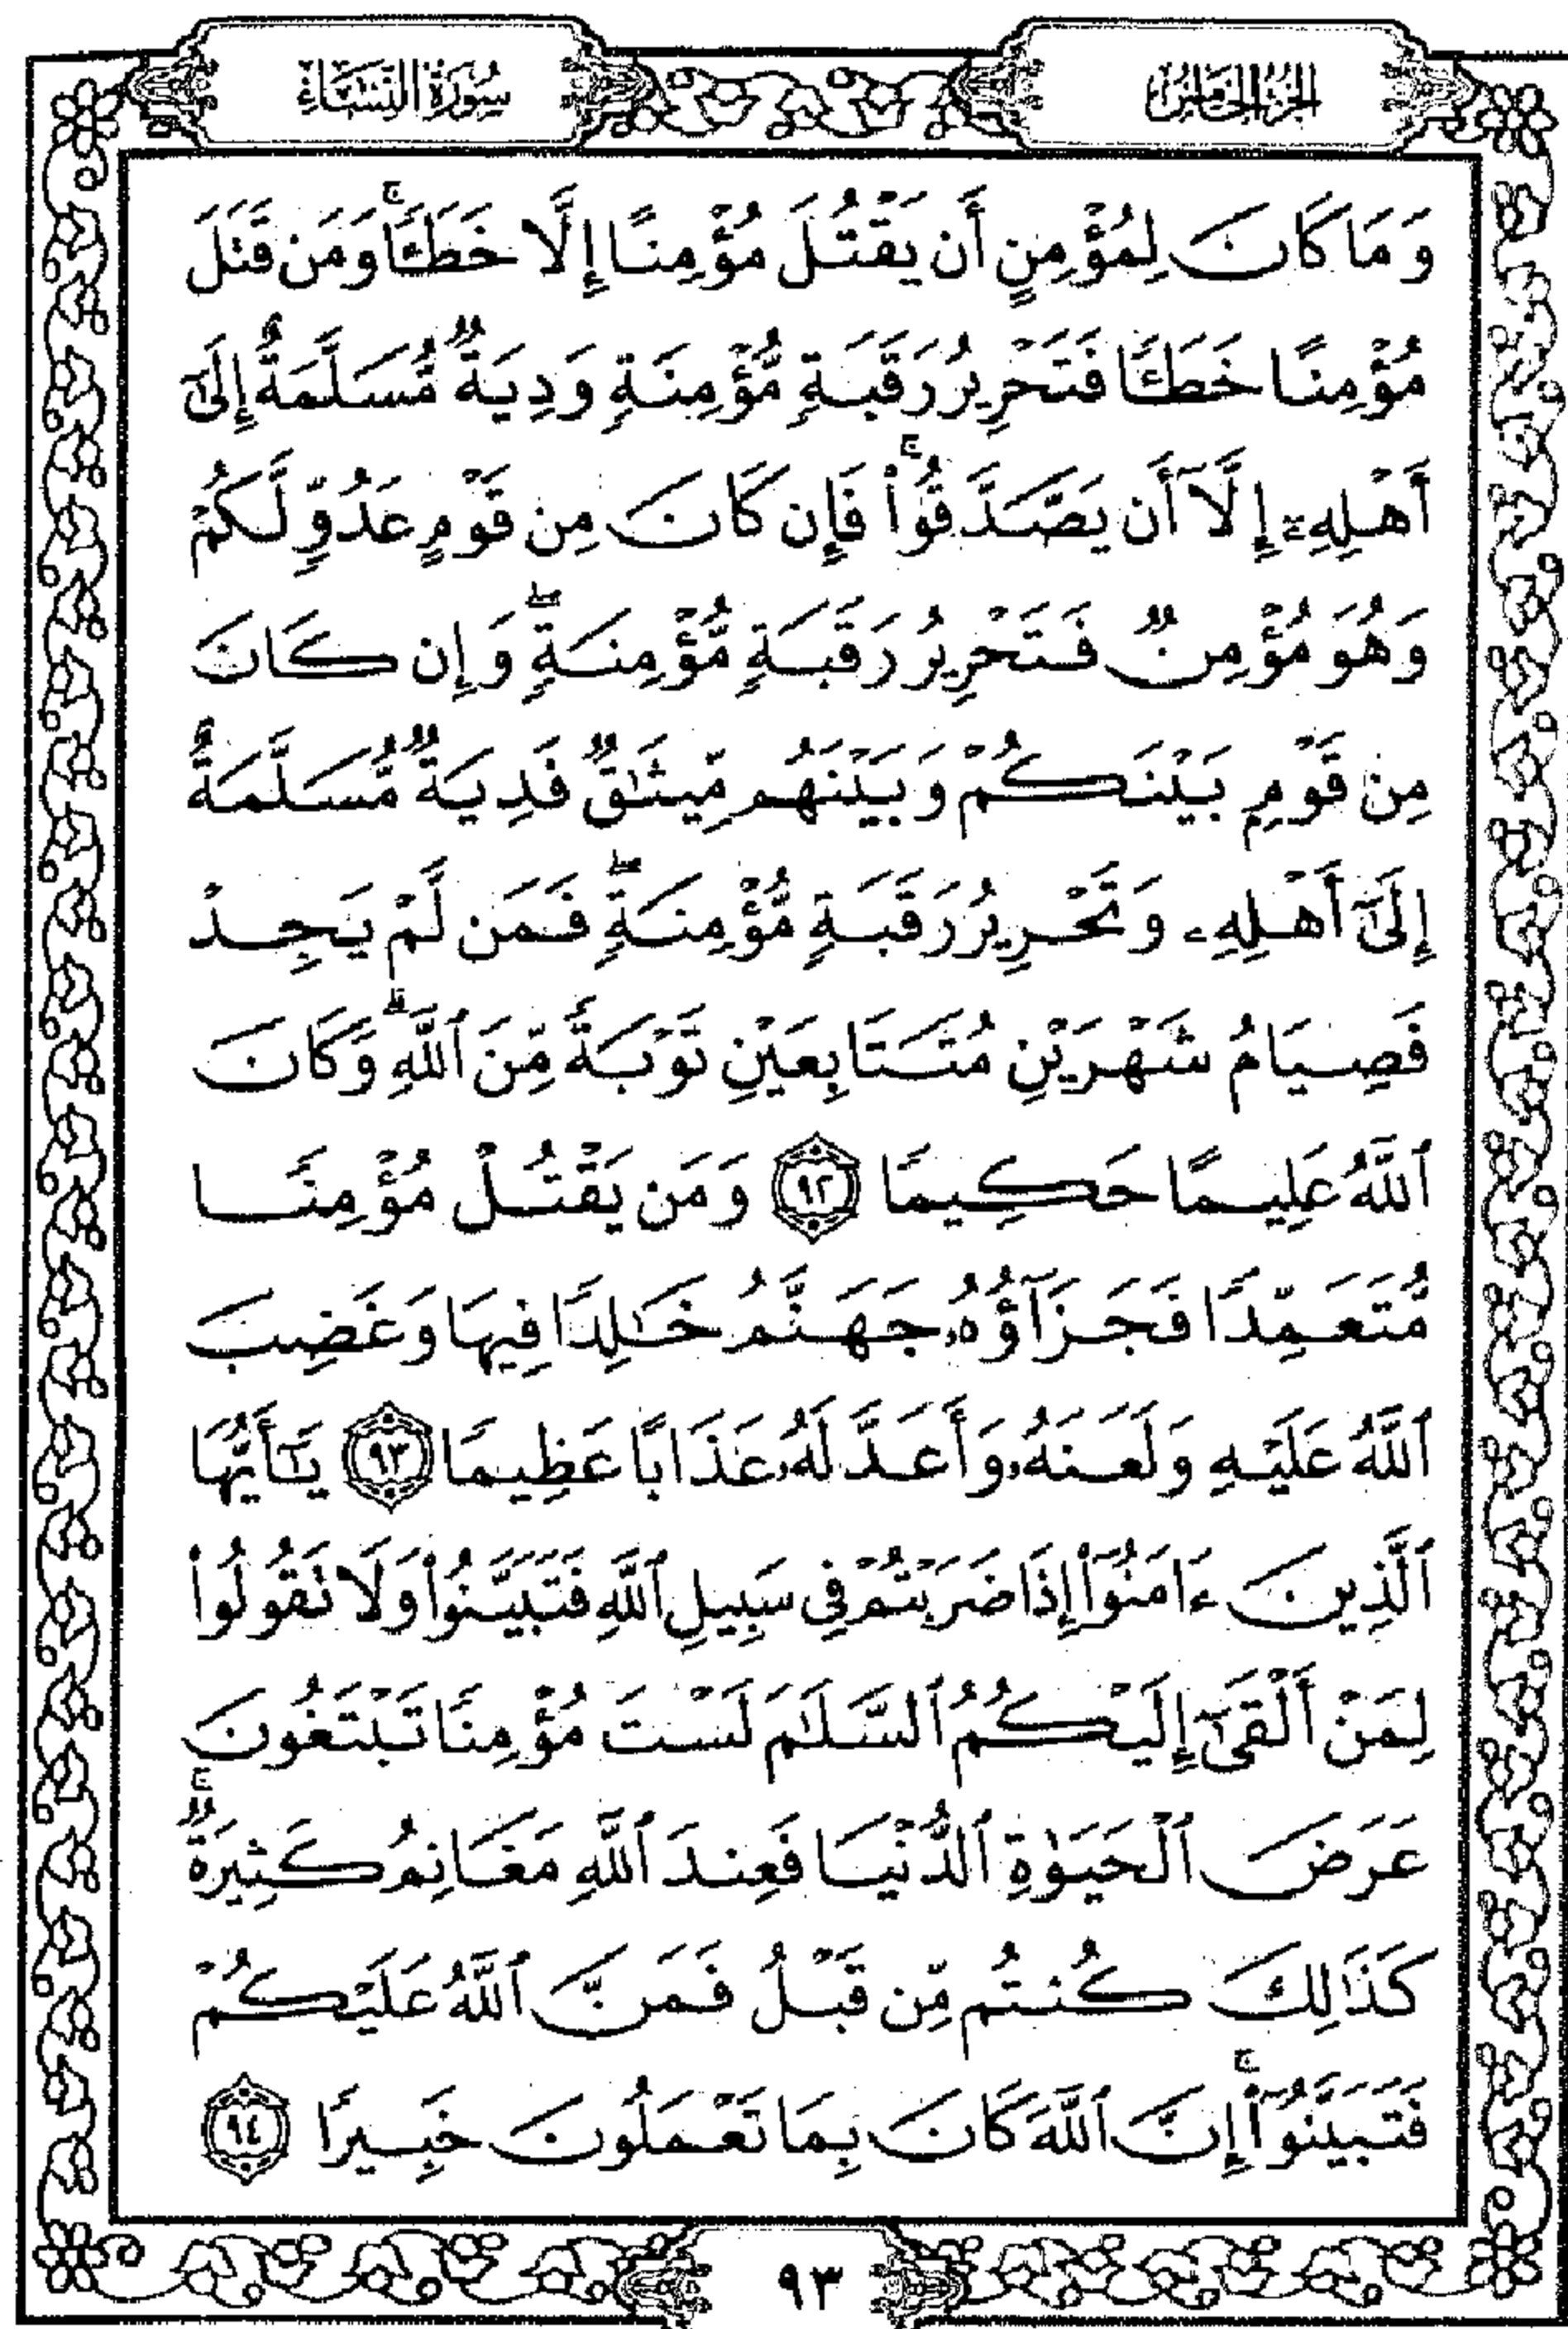 الجزء الخامس
سورة النساء
وَمَا كَانَ لِمُؤْمِنٍ أَن يَقْتُلَ مُؤْمِنًا إِلَّا خَطَـًٔاۚ وَمَن قَتَلَ
مُؤْمِنًا خَطَـًٔا فَتَحْرِيرُ رَقَبَةٍ مُّؤْمِنَةٍ وَدِيَةٌ مُّسَلَّمَةٌ إِلَىٰٓ
أَهْلِهِۦٓ إِلَّآ أَن يَصَّدَّقُوا۟ۚ فَإِن كَانَ مِن قَوْمٍ عَدُوٍّ لَّكُمْ
وَهُوَ مُؤْمِنٌ فَتَحْرِيرُ رَقَبَةٍ مُّؤْمِنَةٍۖ وَإِن كَانَ
مِن قَوْمٍۭ بَيْنَكُمْ وَبَيْنَهُم مِّيثَٰقٌ فَدِيَةٌ مُّسَلَّمَةٌ
إِلَىٰٓ أَهْلِهِۦ وَتَحْرِيرُ رَقَبَةٍ مُّؤْمِنَةٍۖ فَمَن لَّمْ يَجِدْ
فَصِيَامُ شَهْرَيْنِ مُتَتَابِعَيْنِ تَوْبَةً مِّنَ ٱللَّهِۗ وَكَانَ
ٱللَّهُ عَلِيمًا حَكِيمًا ٩٢ وَمَن يَقْتُلْ مُؤْمِنًا
مُّتَعَمِّدًا فَجَزَآؤُهُۥ جَهَنَّمُ خَٰلِدًا فِيهَا وَغَضِبَ
ٱللَّهُ عَلَيْهِ وَلَعَنَهُۥ وَأَعَدَّ لَهُۥ عَذَابًا عَظِيمًا ٩٣ يَٰٓأَيُّهَا
ٱلَّذِينَ ءَامَنُوٓا۟ إِذَا ضَرَبْتُمْ فِى سَبِيلِ ٱللَّهِ فَتَبَيَّنُوا۟ وَلَا تَقُولُوا۟
لِمَنْ أَلْقَىٰٓ إِلَيْكُمُ ٱلسَّلَٰمَ لَسْتَ مُؤْمِنًا تَبْتَغُونَ
عَرَضَ ٱلْحَيَوٰةِ ٱلدُّنْيَا فَعِندَ ٱللَّهِ مَغَانِمُ كَثِيرَةٌۚ
كَذَٰلِكَ كُنتُم مِّن قَبْلُ فَمَنَّ ٱللَّهُ عَلَيْكُمْ
فَتَبَيَّنُوٓا۟ۚ إِنَّ ٱللَّهَ كَانَ بِمَا تَعْمَلُونَ خَبِيرًا ٩٤
٩٣